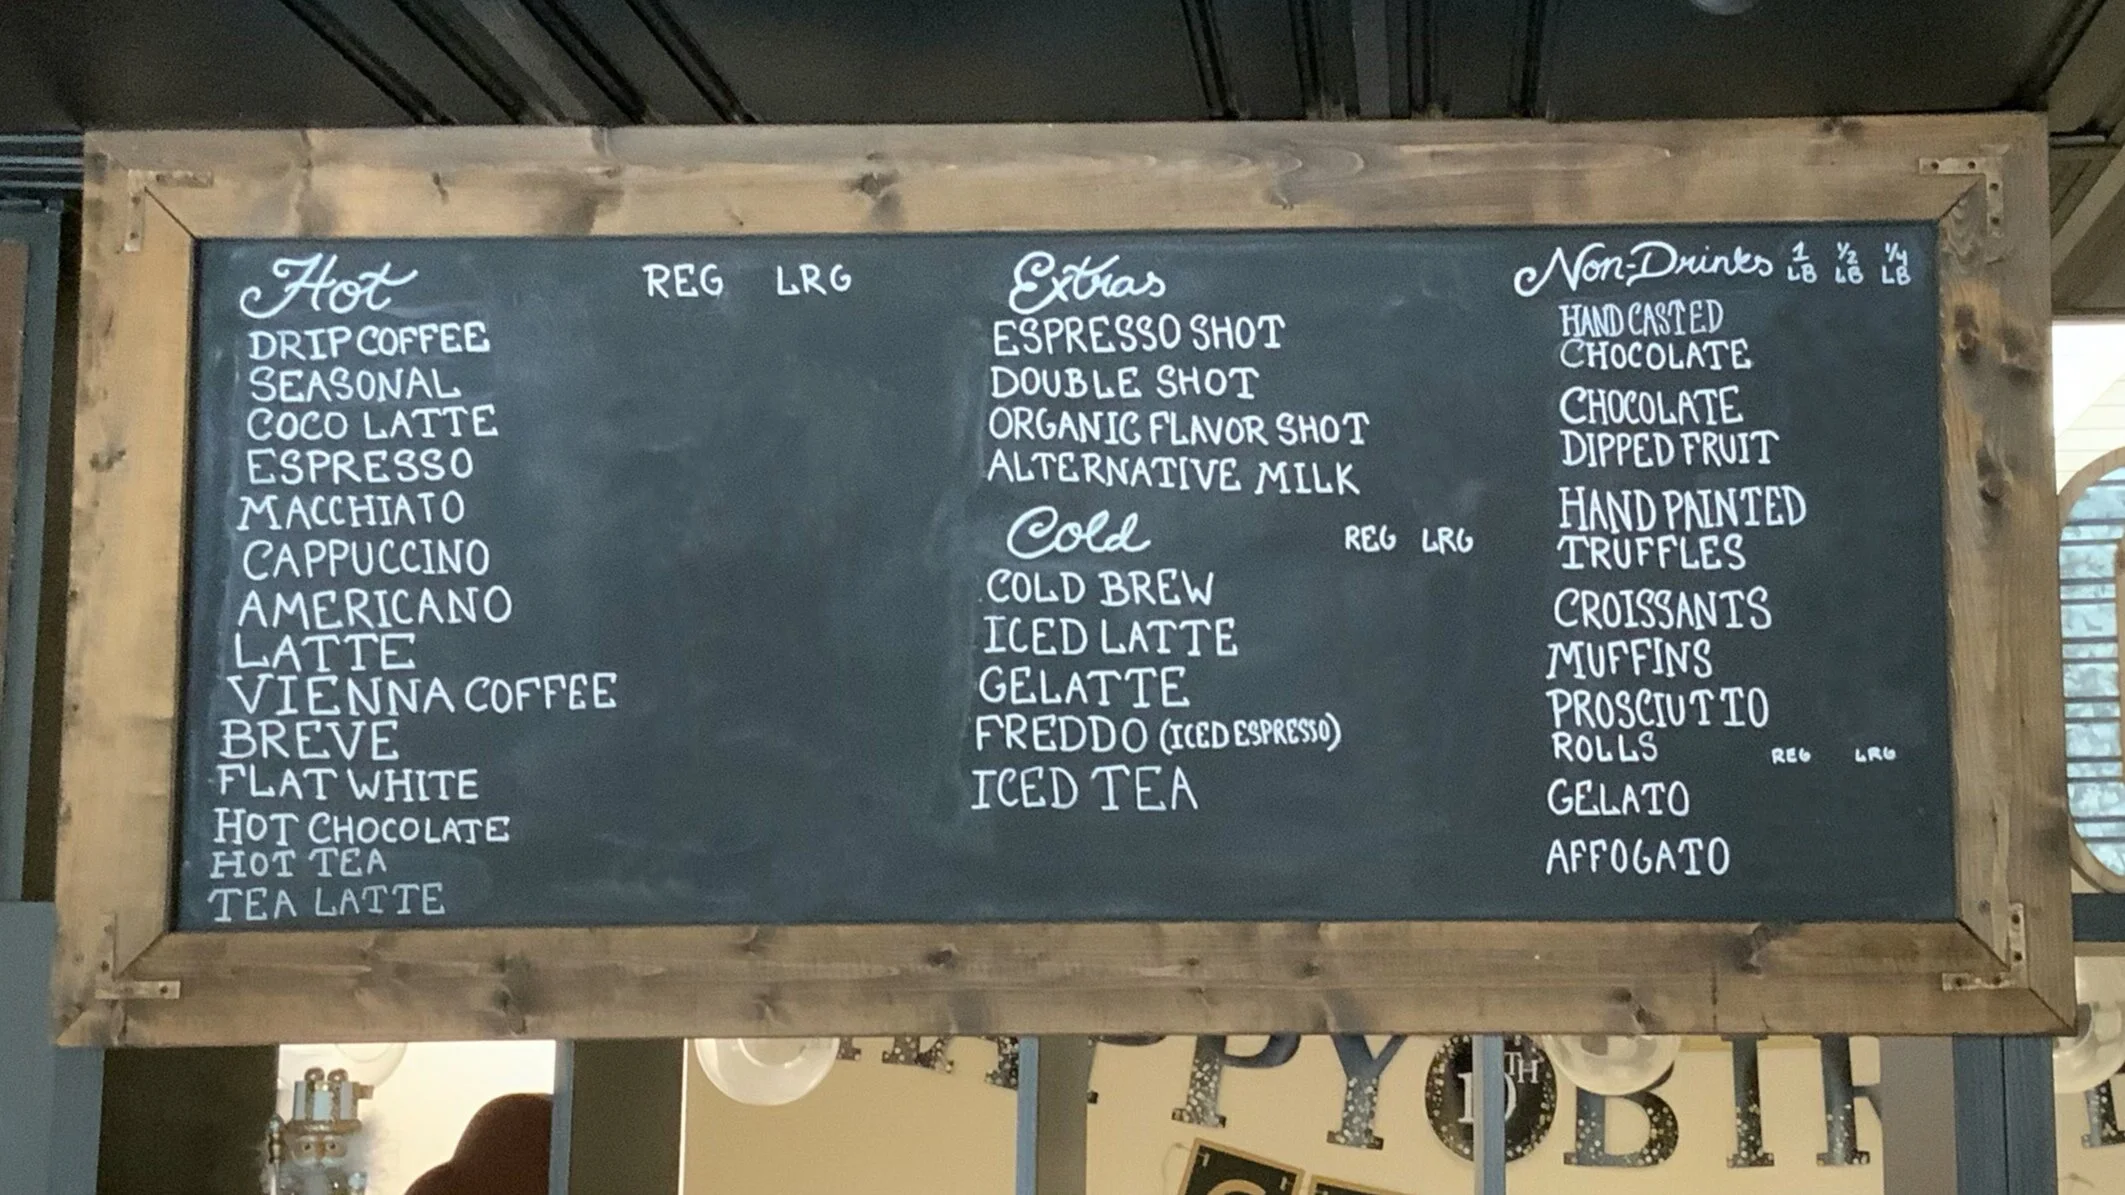 Hot REG LRG
DRIP COFFEE
SEASONAL
COCO LATTE
ESPRESSO
MACCHIATO
CAPPUCCINO
AMERICANO
LATTE
VIENNA COFFEE
BREVE
FLAT WHITE
HOT CHOCOLATE
HOT TEA
TEA LATTE
Extras
ESPRESSO SHOT
DOUBLE SHOT
ORGANIC FLAVOR SHOT
ALTERNATIVE MILK
Cold REG LRG
COLD BREW
ICED LATTE
GELATTE
FREDDO (ICED ESPRESSO)
ICED TEA
Non-Drinks 1 LB 1/2 LB 1/4 LB
HAND CASTED
CHOCOLATE
CHOCOLATE
DIPPED FRUIT
HAND PAINTED
TRUFFLES
CROISSANTS
MUFFINS
PROSCIUTTO
ROLLS REG LRG
GELATO
AFFOGATO